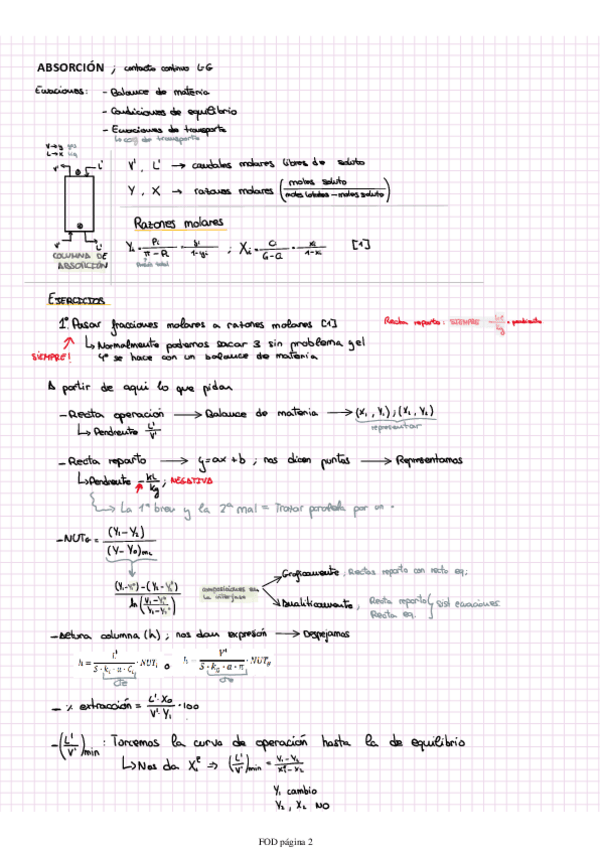 ABSORCIÓN ; contacto continuo L-G
Ecuaciones: - Balance de materia
- Condiciones de equilibrio
- Ecuaciones de transporte
↳ coef de transporte
V → y gas
L → x líq
V' L'
V', L' → caudales molares libres de soluto
Y, X → razones molares (moles soluto / moles totales - moles soluto)
V' L'
COLUMNA DE
ABSORCIÓN
Razones molares
Yi = Pi / (π - Pi) = yi / (1-yi) ; Xi = Ci / (G-Ci) = xi / (1-xi) [1]
Presión total
EJERCICIOS
1º Pasar fracciones molares a razones molares [1]
Recta reparto: SIEMPRE - kL/kg = pendiente
↳ Normalmente podemos sacar 3 sin problema y el
SIEMPRE! 4º se hace con un balance de materia
A partir de aqui lo que pidan
- Recta operación → Balance de materia → (X1, Y1) ; (X2, Y2)
↳ Pendiente L'/V' representar
- Recta reparto → y = ax + b ; nos dicen puntos → Representamos
↳ Pendiente - kL/kg ; NEGATIVA
↳ La 1ª bien y la 2ª mal = Trazar paralela por un •
- NUTG = (Y1 - Y2) / (Y - Yo)mL
(Y1 - Y1*) - (Y2 - Y2*) / ln (Y1 - Y1*) / (Y2 - Y2*)
composiciones en
la interfase
Graficamente, Rectas reparto con recta eq.
Analiticamente, Recta reparto
Recta eq. } sist ecuaciones
- Altura columna (h) ; nos dan expresión → Despejamos
h = L' / (S · kL · a · CL) · NUTL o h = V' / (S · kG · a · π) · NUTG
cte cte
- % extracción = L' · X0 / V' · Y1 · 100
- (L'/V')min : Torcemos la curva de operación hasta la de equilibrio
↳ Nos da X1* ⇒ (L'/V')min = (Y1 - Y2) / (X1* - X2)
Y1 cambio
Y2, X2 NO
FOD página 2